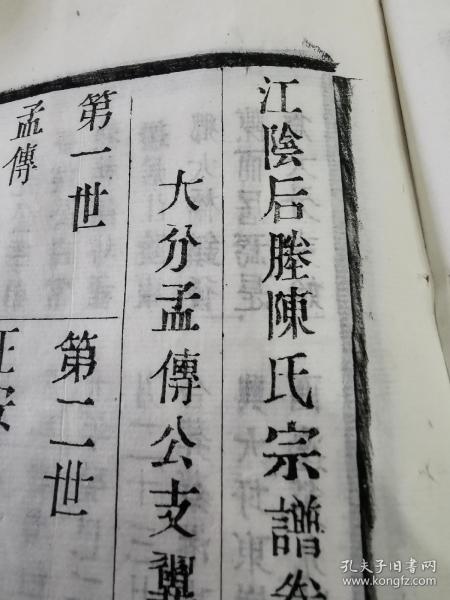 江陰后塍陳氏宗譜卷
大分孟傳公支
第一世
第二世
孟傳
孔夫子旧书网